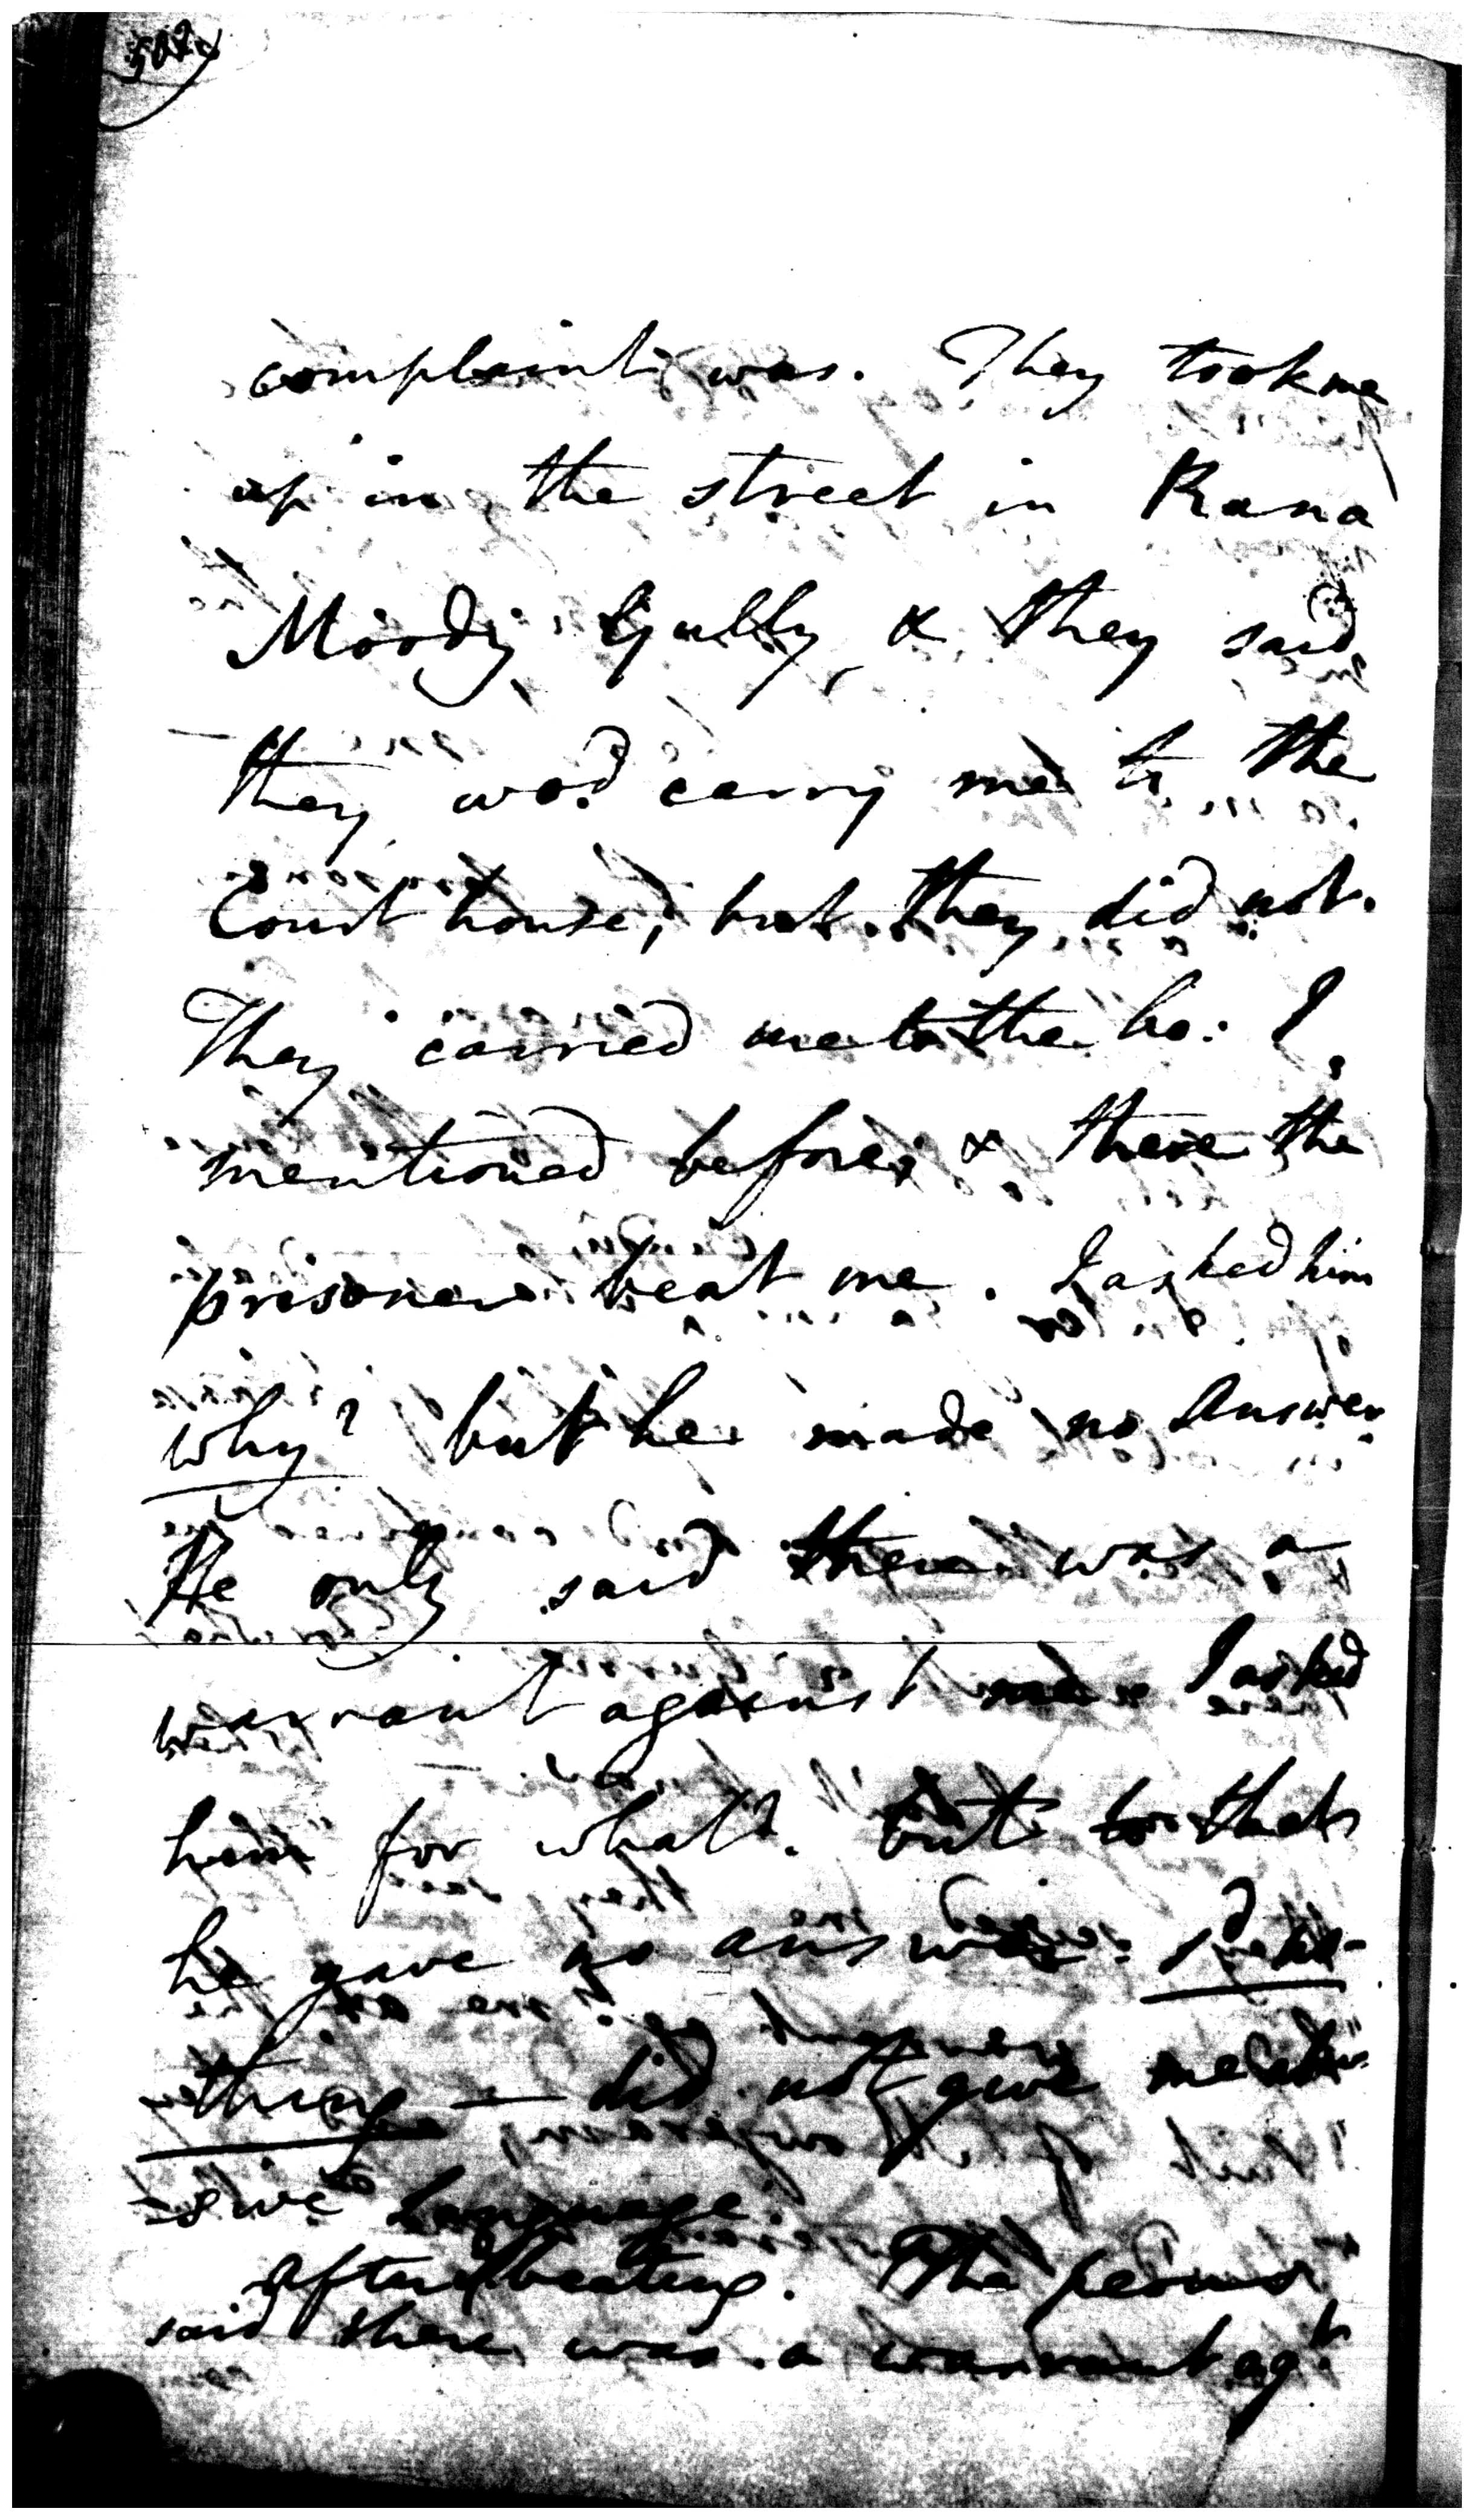 complaint was. They took me
up in the street in Rana
Moody Gully, & they said
they wo.d carry me to the
Court house; but they did not.
They carried me to the ho: I
mentioned before; & there the
prisoner beat me. I asked him
why? but he made no Answer.
He only said there was a
warrant against me. I asked
him for what? but to that
he gave no answer: s.d no-
-thing — did not give me abu-
-sive language
after beating. The peons
said there was a warrant ag.t